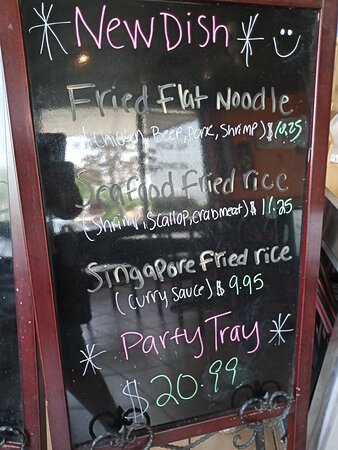 New Dish
Fried Flat Noodle
(Chicken, Beef, Pork, Shrimp) $10.25
Seafood Fried rice
(Shrimp, Scallop, crabmeat) $ 11.25
Singapore Fried rice
(curry sauce) $ 9.95
Party Tray
$ 20.99